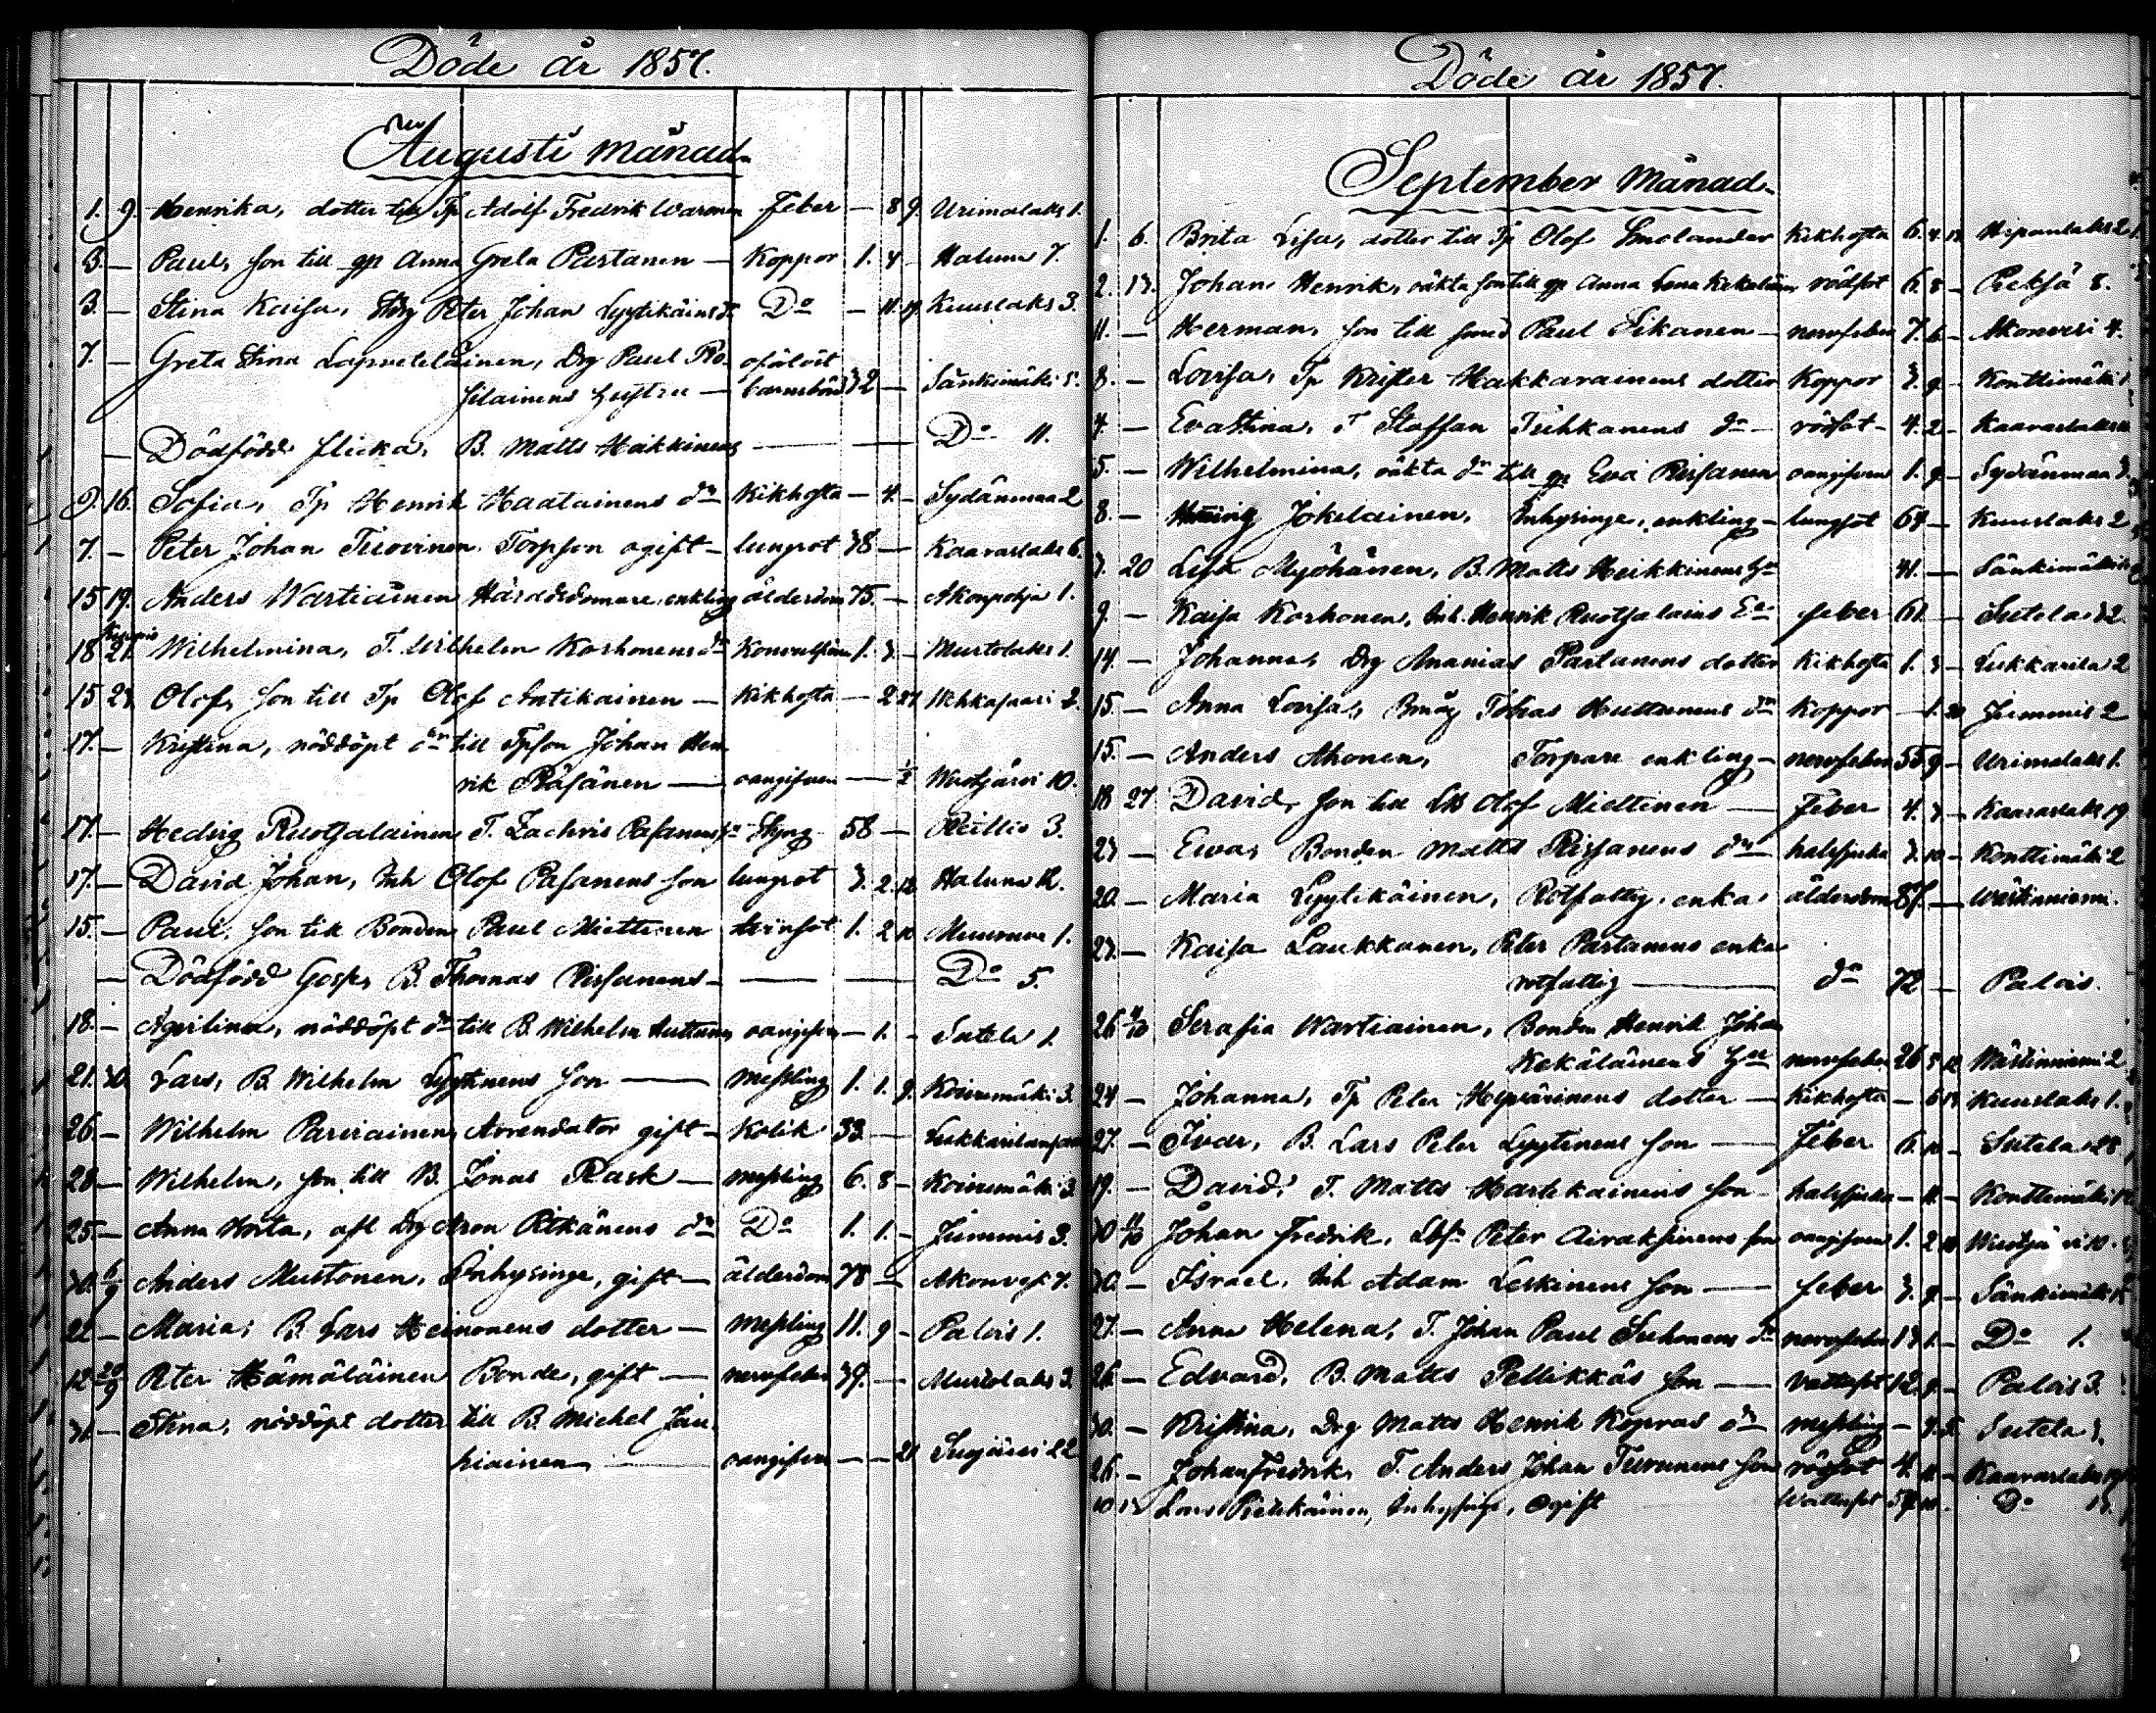 Döde år 1857.
Augusti månad.
1. 9. Henrika, dotter till Tp Adolf Fredrik Waronen Feber — 8 9. Urimolaks 1.
3. — Paul, son till qp Anna Greta Partanen — Koppor 1. 4 — Haluna 7.
3. — Stina Kaisa, Peter Johan Lyytikäins dr Do — 11. 19. Kuuslaks 3.
7. — Greta Stina Lapveteläinen, Drg Paul Ro- oförlöst
filainens hustru — barnsbörd 32 — Sänkimäki 5.
— Dödfödd flicka, B. Matts Hakkinens — — Do 11.
9. 16. Sofia, Tp Henrik Haatainens dr Kikhosta — 4. — Sydänmaa 2
7. — Peter Johan Tuovinen Torpson ogift — lungsot 38 — Kaavarlaks 6.
15 19. Anders Wartiainen Häradsdomare, enkling ålderdom 75. — Akonpohja 1.
18 21. Wilhelmina, T. Wilhelm Korhonens dr Konvulsion 1. 3 — Murtolaks 1.
15 23 Olof, son till Tp Olof Antikainen — Kikhosta — 2 27 Wehkasaari 2.
17. — Kristina, nöddöpt dr till Tpson Johan Hen-
rik Räsänen — oangifven — 1/2 Wuotjärvi 10.
17. — Hedvig Ruotsalainen T. Zachris Pasanens h. Styng 58 — Reittio 3.
17. — David Johan, Inh Olof Pasanens son lungsot 3. 2. 12. Haluna 12.
15. — Paul, son till Bonden Paul Miettinen tvinsot 1. 2 10 Muuruve 1.
— Dödfödd Gosse, B. Thomas Pirsanens — — Do 5.
18. — Aqvilina, nöddöpt dr till B. Wilhelm Huttunen oangifven — 1. — Sutela 1.
21. 30. Lars, B. Wilhelm Lyytinens son — Messling 1. 1. 9. Koivumäki 3.
26. — Wilhelm Parviainen, Arrendator gift — Kolik 33. —
28 — Wilhelm, son till B. Jonas Rask — Messling 6. 8 — Koivumäki 3.
25. — Anna Greta, afl Drg Aron Pitkänens dr Do 1. 1. — Juminis 3.
30. 6/9 Anders Mustonen, Inhysinge, gift — ålderdom 78 — Akonvesi 7.
22 — Maria, B. Lars Heinonens dotter — Messling 11. 9 — Palois 1.
12 20/9 Peter Hämäläinen Bonde, gift — nervfeber 39. — Murtolaks 3.
31. — Stina, nöddöpt dotter till B. Michel Jau-
hiainen — oangifven — — 21 Suojärvi 22
Döde år 1857.
September Månad.
1. 6. Brita Lisa, dotter till Tp Olof Smolander Kikhosta 6. 4. 12. Hipanlaks 2
2. 13. Johan Henrik, oäkta son till qp Anna Lena Kekäläinen rödsot 6. 8 — Pieksä 8.
11. — Herman, son till smed Paul Sikanen — nervfeber 7. 6 — Akonvesi 4.
8. — Lovisa, Tp Krister Hakkarainens dotter Koppor 3. 9 — Konttimäki 1
4. — Eva Stina, T Staffan Tiihkanens dr — rödsot — 4. 2 — Kaavarlaks
5. — Wilhelmina, oäkta dr till qp Eva Pirsanen oangifven 1. 9 — Sydänmaa 3.
8. — Henning Jokelainen, Inhysinge, enkling — lungsot 64 — Kuuslaks 2
3. 20 Lisa Myöhänen, B. Matts Heikkinens hu 41. — Sänkimäki
9. — Kaisa Korhonen, Inh. Henrik Ruotsalains Ea feber 61. — Sutela 32
14. — Johanna, Drg Ananias Partanens dotter Kikhosta 1. 3 — Lukkarila 2
15. — Anna Lovisa, Bmåg Tobias Huttunens dr Koppor — 1. 20 Juminis 2
15. — Anders Ahonen, Torpare enkling — nervfeber 55 9 — Urimolaks 1.
18 27 David, son till Olof Miettinen — Feber 4. 3 — Kaavarlaks 19
23 — Ewa, Bonden Matts Pirsanens dr — halssjuka 3. 10 — Konttimäki 2
20. — Maria Lyytikäinen, Rotfattig, enka, ålderdom 87. — Wästinniemi.
23. — Kaisa Laukkanen, Peter Partanens enka
rotfattig — do 72 — Palois.
26 4/10 Serafia Wartiainen, Bonden Henrik Johan
Kekäläinens hu nervfeber 26 5 12 Wästinniemi 2
24 — Johanna, Tp Peter Hyvärinens dotter — Kikhosta — 6 14 Kuuslaks 1.
27. — Ivar, B. Lars Peter Lyytinens son — Feber 6. 10 — Sutela 28
19. — David, T. Matts Hartikainens son — halssjuka — 11. — Konttimäki 12
30 11/10 Johan Fredrik, Peter Airaksinens son oangifven 1. 2 18 Wuotjärvi 10.
30. — Israel, Inh Adam Leskinens son — feber 3. 9. — Sänkimäki 15
27. — Anna Helena, T. Johan Paul Suhonens dr nervfeber 13 1. — Do 1.
26. — Edvard, B. Matts Pellikkäs son — vattusot 12. 9. — Palois 3.
30. — Kristina, Drg Matts Henrik Kopras dr messling — 9. 5. Sutela 3.
26. — Johan Fredrik, T. Anders Johan Turunens son rödsot 4. 11. — Kaavarlaks 19
10 13 Lars Pietikäinen, Inhysinge, ogift Wattusot 57 10 — Do 13.